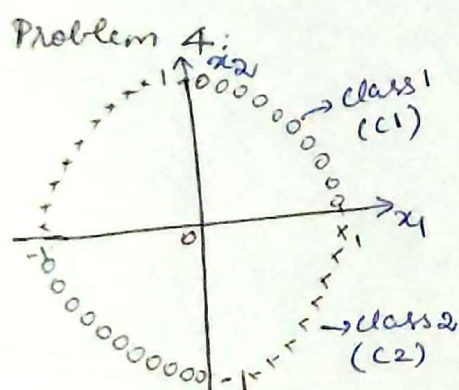 Problem 4:
x2
1
class 1
(C1)
x1
0
1
-1
class 2
(C2)
-1